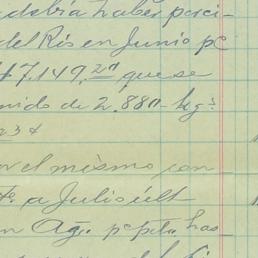 debia haber perci-
del Rio en Junio pº
$7.149.20 que se
nido de 2.880- kgs.
234
en el mismo con
a Julio últ
en Agº pº peta has-